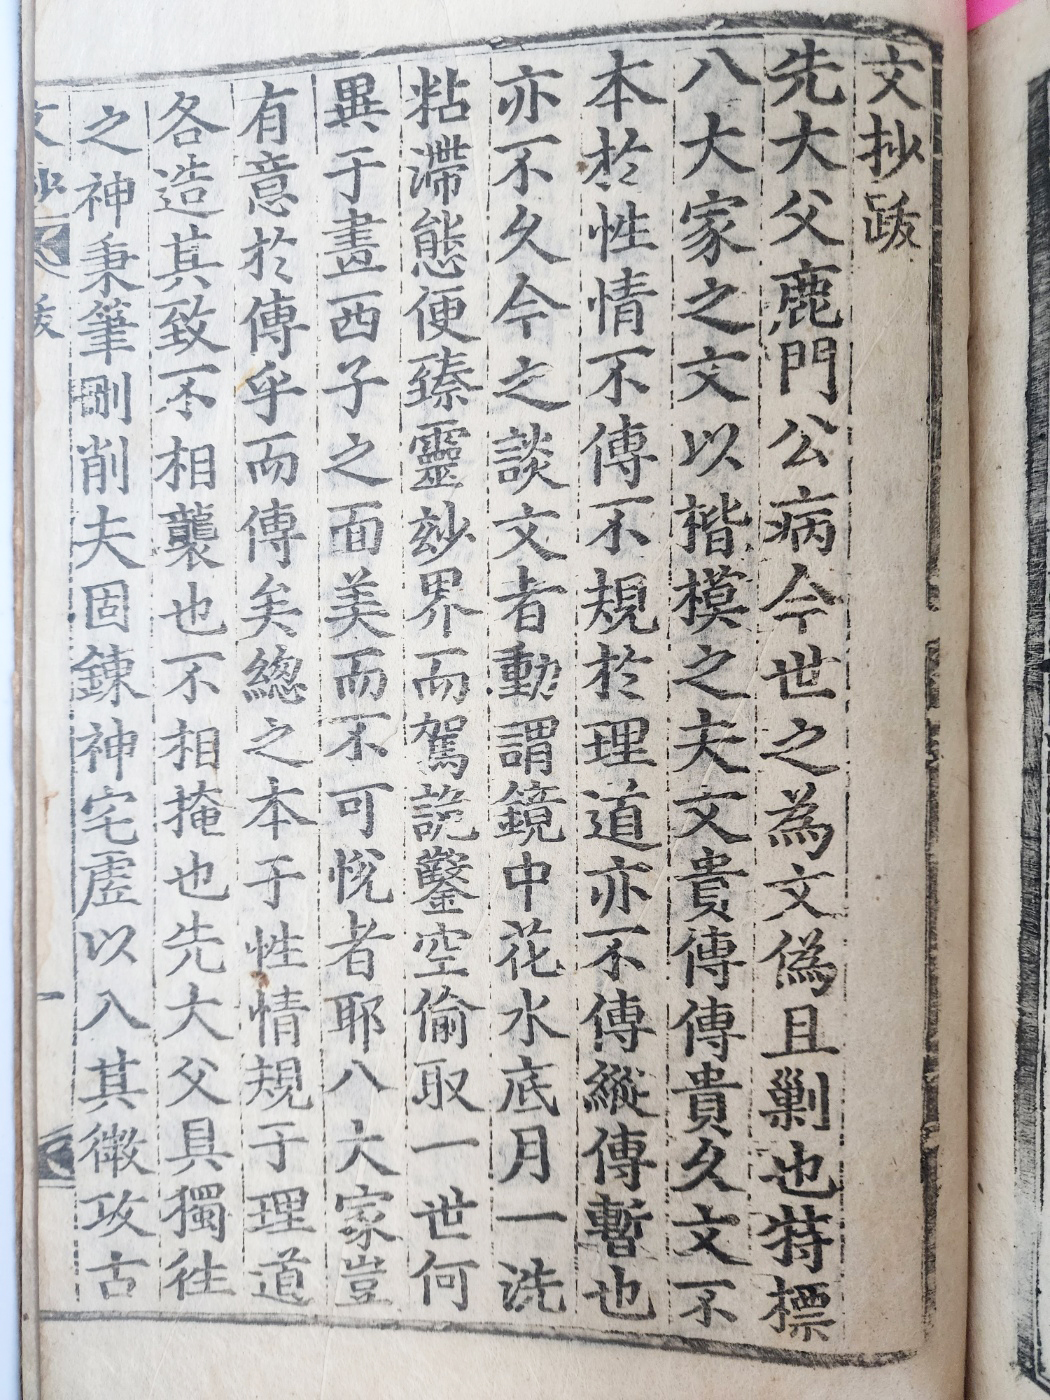 文抄跋
先大父鹿門公病今世之為文偽且剿也特標
八大家之文以楷模之夫文貴傳傳貴久文不
本於性情不傳不規於理道亦不傳縱傳暫也
亦不久今之談文者動謂鏡中花水底月一洗
粘滯態便臻靈玅界而駕詭鑿空偷取一世何
異于畫西子之面美而不可悅者耶八大家豈
有意於傳乎而傳矣總之本于性情規于理道
各造其致不相襲也不相掩也先大父具獨往
之神秉筆刪削夫固鍊神宅虛以入其微攻古
文抄 跋 一